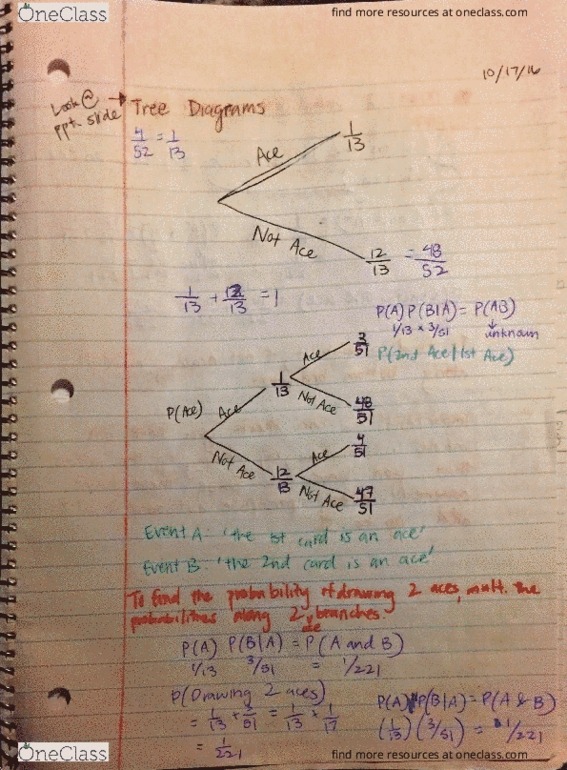 OneClass
find more resources at oneclass.com
10/17/16
Look @
ppt. slide → Tree Diagrams
4/52 = 1/13
Ace
1/13
Not Ace
12/13 = 48/52
1/13 + 12/13 = 1
P(A) P(B|A) = P(AB)
1/13 × 3/51 unknown
P(2nd Ace|1st Ace)
Ace 3/51
P(Ace) Ace 1/13
Not Ace 48/51
Ace 4/51
Not Ace 12/13
Not Ace 47/51
Event A: 'the 1st card is an ace'
Event B: 'the 2nd card is an ace'
To find the probability of drawing 2 aces, mult. the
probabilities along 2 ace branches.
P(A) P(B|A) = P(A and B)
1/13 3/51 = 1/221
P(Drawing 2 aces)
= 1/13 × 3/51 = 1/13 × 1/17
= 1/221
P(A) P(B|A) = P(A & B)
(1/13) (3/51) = 1/221
OneClass
find more resources at oneclass.com